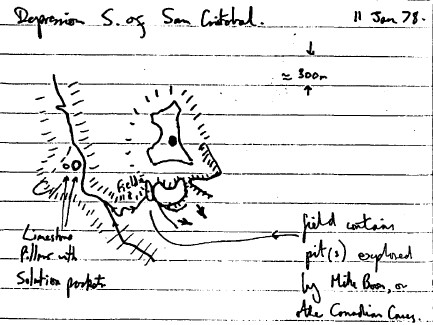 Depression S. of San Cristobal.
11 Jan 78.
≈ 300m
Field
Limestone
Pillars with
Solution pockets
field contains
pit(s) explored
by Mike Boon, or
other Canadian Cavers.